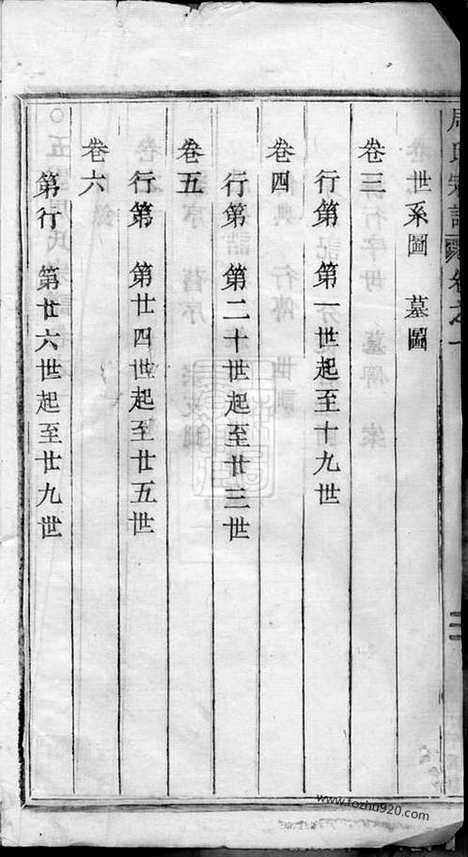 周氏宗譜 卷之一
世系圖 墓圖
卷三
行第 第一世起至十九世
卷四
行第 第二十世起至廿三世
卷五
行第 第廿四世起至廿五世
卷六
第行 第廿六世起至廿九世
www.fozhu920.com